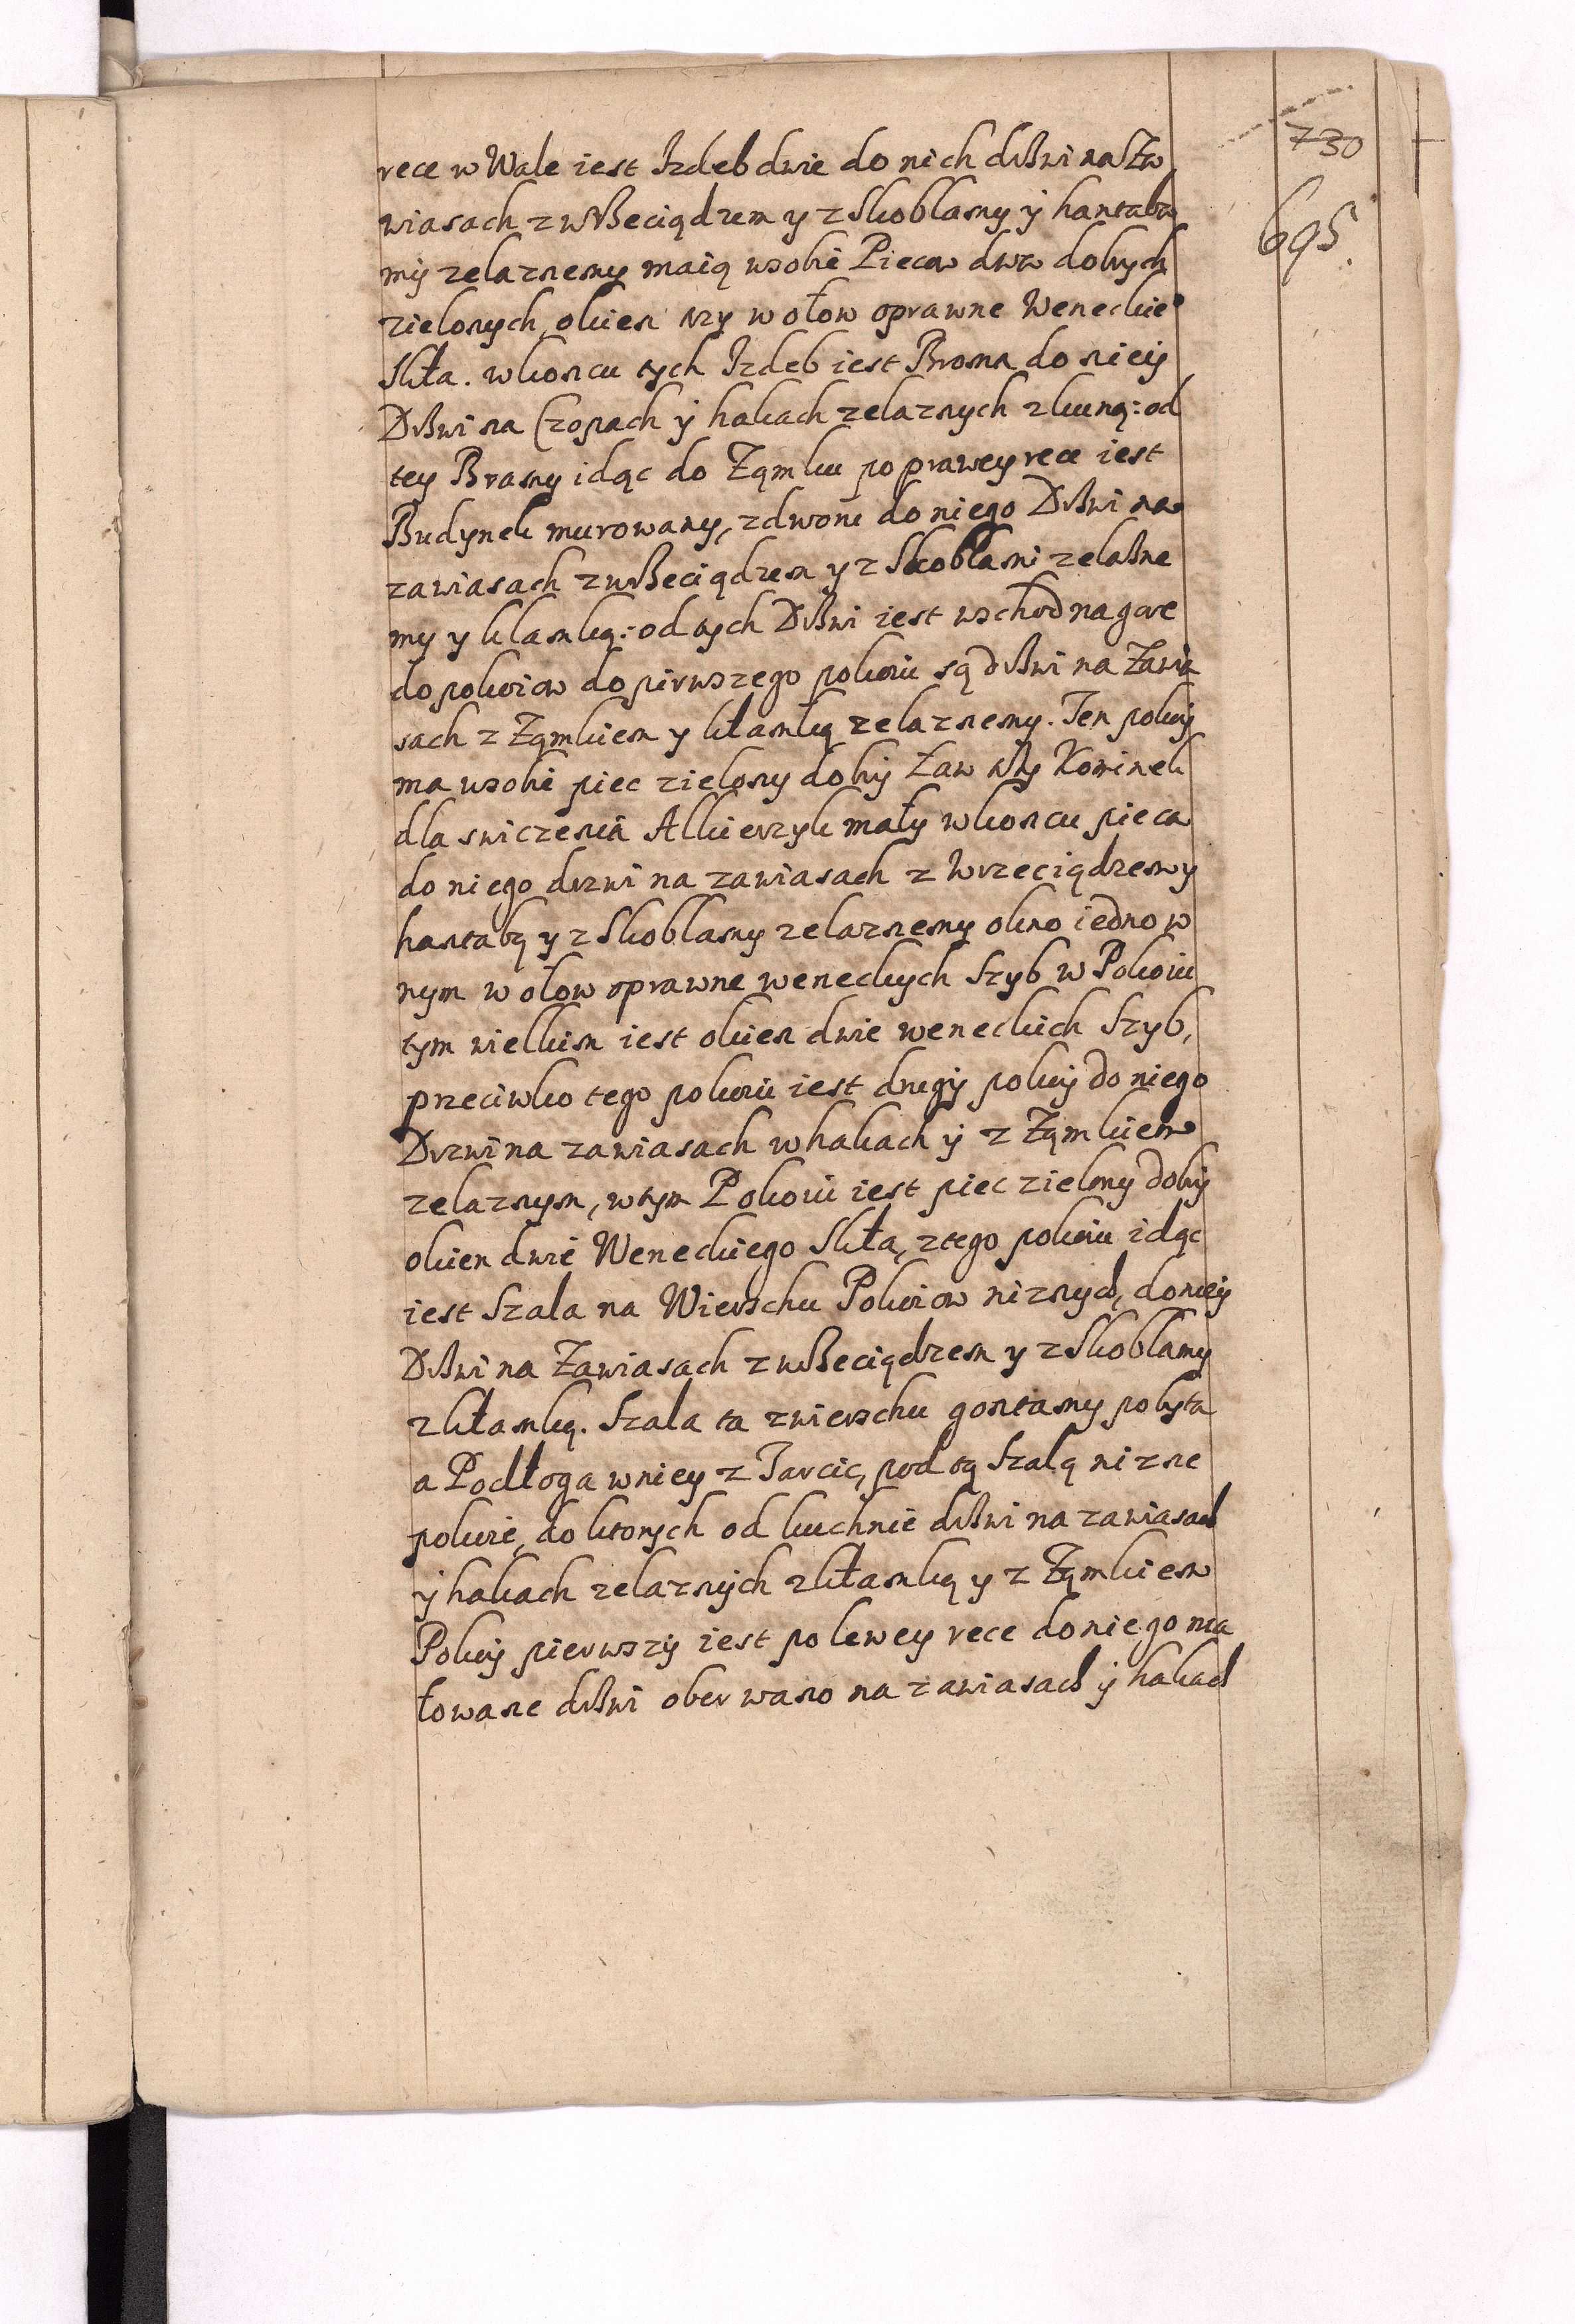 730
695.
rece w Wale iest Izdeb dwie do nich drßwi na Za
wiasach z wrßeciądzem y z Skoblamy ÿ hantaba
mÿ zelaznemy maią wsobie Pieca dwa dobrych
zielonych, okien trzy w ołow oprawne Weneckie°
Skła. wkoncu tych Izdeb iest Brona do nieÿ
Drßwi na Czopach ÿ hakach zelaznych z kuną: od
tey Bramy idąc do Ząmku po prawey rece iest
Budynek murowany, z dworu do niego Drßwi na
zawiasach z wrßeciądzem y z Skoblami zelaßne
my y klamką: od tych Drßwi iest wschod na gore
do pokoiow do pirwszego pokoiu są drßwi na Zawia
sach z Ząmkiem y kłamką zelaznemy. Ten pokoÿ
ma wsobie piec zielony dobrÿ Ław trzy Kominek
dla swiczenia Alkierzyk mały wkoncu pieca
do niego drzwi na zawiasach z Wrzeciądzem y
hantabą y z Skoblamy zelaznemy okno iedno w
nym w ołow oprawne weneckych Szyb w Pokoiu
tym wielkim iest okien dwie weneckich Szyb,
przeciwko tego pokoiu iest drugÿ pokoÿ do niego
Drzwi na zawiasach w hakach ÿ z Ząmkiem
zelaznym, w tym Pokoiu iest piec zielony dobrÿ
okien dwie Weneckiego Skła, z tego pokoiu idąc
iest Szala na Wierschu Pokoiow niznych, do nieÿ
Drßwi na Zawiasach z wrßeciądzem y z Skoblamy
z kłamką. Szala ta z wierschu gontamy pobyta
a Podłoga w niey z Tarcic, pod tą Szalą nizne
pokoie, do ktorych od kuchnie drßwi na zawiasach
ÿ hakach zelaznÿch z kłamką y z Ząmkiem
Pokoÿ pierwszÿ iest po lewey rece do niego ma
lowane drßwi oberwano na zawiasach ÿ hakach